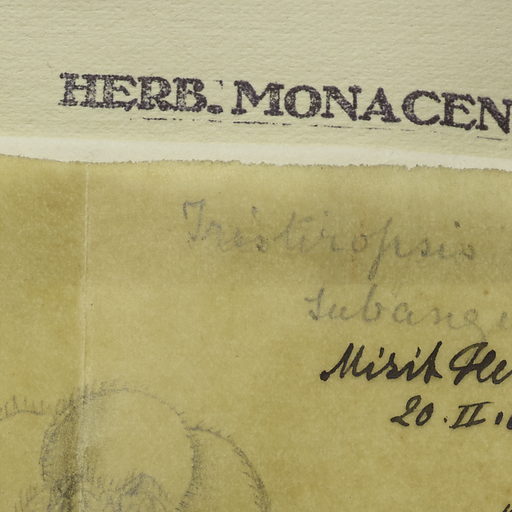 HERB. MONACEN
Tristiropsis
subang
Misit He
20. II.